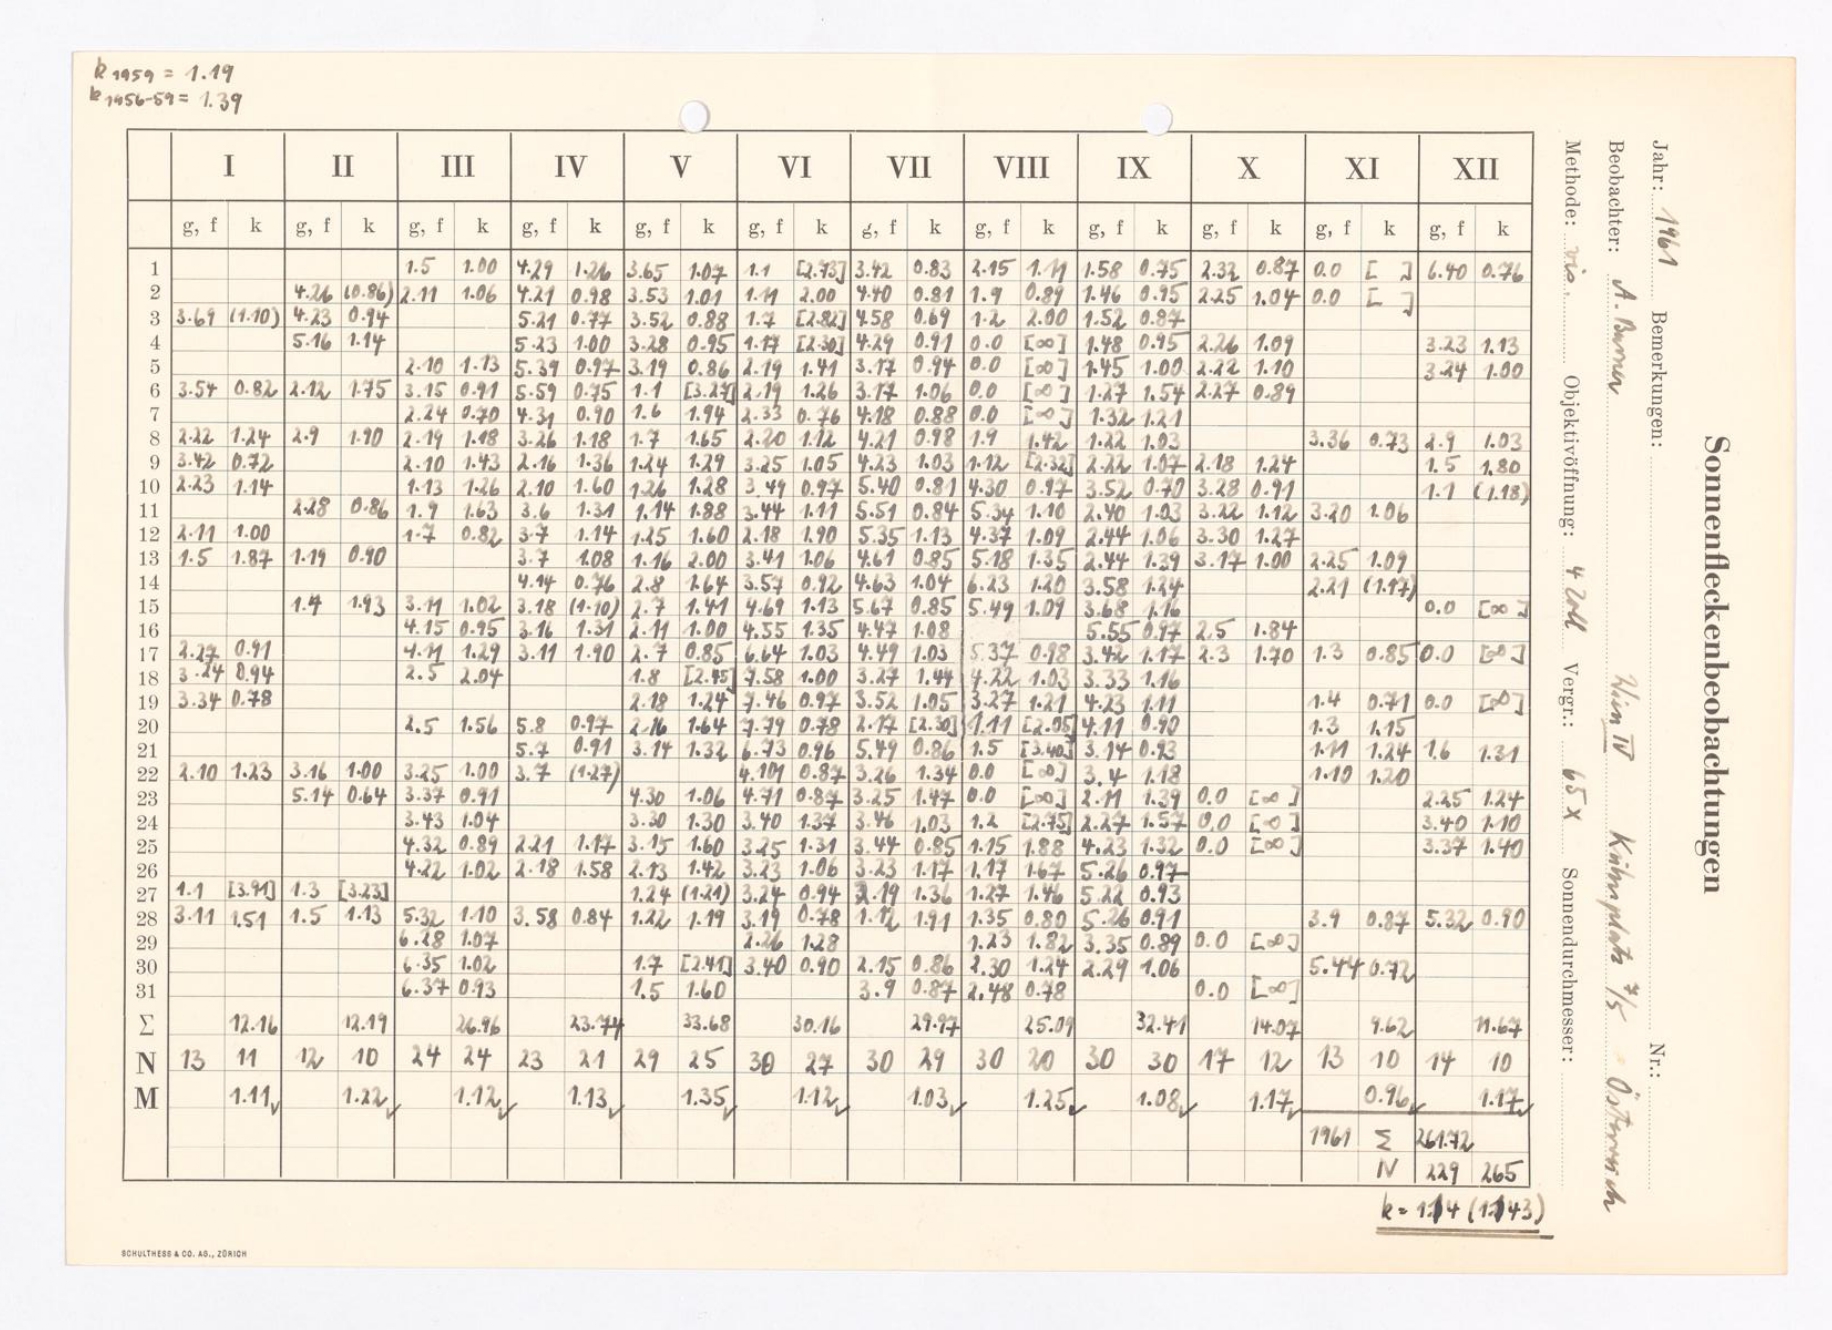 k 1959 = 1.19
k 1956-59 = 1.39
I II III IV V VI VII VIII IX X XI XII
g, f k g, f k g, f k g, f k g, f k g, f k g, f k g, f k g, f k g, f k g, f k g, f k
1 1.5 1.00 4.29 1.26 3.65 1.07 1.1 [2.73] 3.42 0.83 2.15 1.11 1.58 0.75 2.32 0.87 0.0 [ ] 6.40 0.76
2 4.26 (0.86) 2.11 1.06 4.21 0.98 3.53 1.01 1.11 2.00 4.40 0.81 1.9 0.89 1.46 0.95 2.25 1.04 0.0 [ ]
3 3.69 (1.10) 4.23 0.94 5.21 0.77 3.52 0.88 1.7 [2.82] 4.58 0.69 1.2 2.00 1.52 0.87
4 5.16 1.14 5.23 1.00 3.28 0.95 1.17 [2.30] 4.29 0.91 0.0 [∞] 1.48 0.95 2.26 1.09 3.23 1.13
5 2.10 1.13 5.39 0.97 3.19 0.86 2.19 1.41 3.17 0.94 0.0 [∞] 1.45 1.00 2.22 1.10 3.24 1.00
6 3.54 0.82 2.12 1.75 3.15 0.91 5.59 0.75 1.1 [3.27] 2.19 1.26 3.17 1.06 0.0 [∞] 1.27 1.54 2.27 0.89
7 2.24 0.70 4.31 0.90 1.6 1.94 2.33 0.76 4.18 0.88 0.0 [∞] 1.32 1.21
8 2.22 1.24 2.9 1.90 2.19 1.18 3.26 1.18 1.7 1.65 2.20 1.12 4.21 0.98 1.9 1.42 1.22 1.03 3.36 0.73 2.9 1.03
9 3.42 0.72 2.10 1.43 2.16 1.36 1.24 1.29 3.25 1.05 4.23 1.03 1.12 [2.32] 2.22 1.07 2.18 1.24 1.5 1.80
10 2.23 1.14 1.13 1.26 2.10 1.60 1.26 1.28 3.49 0.97 5.40 0.81 4.30 0.97 3.52 0.70 3.28 0.91 1.1 (1.18)
11 2.28 0.86 1.9 1.63 3.6 1.31 1.14 1.88 3.44 1.11 5.51 0.84 5.34 1.10 2.40 1.03 3.22 1.12 3.20 1.06
12 2.11 1.00 1.7 0.82 3.7 1.14 1.25 1.60 2.18 1.90 5.35 1.13 4.37 1.09 2.44 1.06 3.30 1.27
13 1.5 1.87 1.19 0.90 3.7 1.08 1.16 2.00 3.41 1.06 4.61 0.85 5.18 1.35 2.44 1.39 3.17 1.00 2.25 1.09
14 4.14 0.76 2.8 1.64 3.57 0.92 4.63 1.04 6.23 1.20 3.58 1.24 2.21 (1.17)
15 1.4 1.93 3.11 1.02 3.18 (1.10) 2.7 1.41 4.69 1.13 5.67 0.85 5.49 1.09 3.68 1.16 0.0 [∞]
16 4.15 0.95 3.16 1.31 2.11 1.00 4.55 1.35 4.47 1.08 5.55 0.97 2.5 1.84
17 2.27 0.91 4.11 1.29 3.11 1.90 2.7 0.85 6.64 1.03 4.49 1.03 5.37 0.98 3.42 1.17 2.3 1.70 1.3 0.85 0.0 [∞]
18 3.24 0.94 2.5 2.04 1.8 [2.45] 7.58 1.00 3.27 1.44 4.22 1.03 3.33 1.16
19 3.34 0.78 2.18 1.24 7.46 0.97 3.52 1.05 3.27 1.21 4.23 1.11 1.4 0.71 0.0 [∞]
20 2.5 1.56 5.8 0.97 2.16 1.64 7.79 0.78 2.17 [2.30] 1.11 [2.05] 4.11 0.90 1.3 1.15
21 5.7 0.91 3.14 1.32 6.73 0.96 5.49 0.86 1.5 [3.40] 3.14 0.93 1.11 1.24 1.6 1.31
22 2.10 1.23 3.16 1.00 3.25 1.00 3.7 (1.27) 4.101 0.87 3.26 1.34 0.0 [∞] 3.4 1.18 1.10 1.20
23 5.14 0.64 3.37 0.91 4.30 1.06 4.71 0.87 3.25 1.47 0.0 [∞] 2.11 1.39 0.0 [∞] 2.25 1.24
24 3.43 1.04 3.30 1.30 3.40 1.37 3.46 1.03 1.2 [2.75] 2.27 1.57 0.0 [∞] 3.40 1.10
25 4.32 0.89 2.21 1.17 3.15 1.60 3.25 1.31 3.44 0.85 1.15 1.88 4.23 1.32 0.0 [∞] 3.37 1.40
26 4.22 1.02 2.18 1.58 2.13 1.42 3.23 1.06 3.23 1.17 1.17 1.67 5.26 0.97
27 1.1 [3.91] 1.3 [3.23] 1.24 (1.21) 3.24 0.94 2.19 1.36 1.27 1.46 5.22 0.93
28 3.11 1.51 1.5 1.13 5.32 1.10 3.58 0.84 1.22 1.19 3.19 0.78 1.12 1.91 1.35 0.80 5.26 0.91 3.9 0.87 5.32 0.90
29 6.28 1.07 2.26 1.28 1.23 1.82 3.35 0.89 0.0 [∞]
30 6.35 1.02 1.7 [2.41] 3.40 0.90 2.15 0.86 2.30 1.24 2.29 1.06 5.44 0.72
31 6.37 0.93 1.5 1.60 3.9 0.87 2.48 0.78 0.0 [∞]
Σ 12.16 12.19 26.96 23.74 33.68 30.16 29.97 25.09 32.41 14.07 9.62 11.67
N 13 11 12 10 24 24 23 21 29 25 30 27 30 29 30 20 30 30 17 12 13 10 14 10
M 1.11 1.22 1.12 1.13 1.35 1.12 1.03 1.25 1.08 1.17 0.96 1.17
1961 Σ 261.72
N 229 265
k = 1.14 (1.143)
SCHULTHESS & CO. AG., ZÜRICH
Sonnenfleckenbeobachtungen
Jahr: 1961 Bemerkungen: Nr.:
Beobachter: A. Wien IV 7/5 Österreich
Methode: vis. Objektivöffnung: 4 Zoll Vergr.: 65 x Sonnendurchmesser: